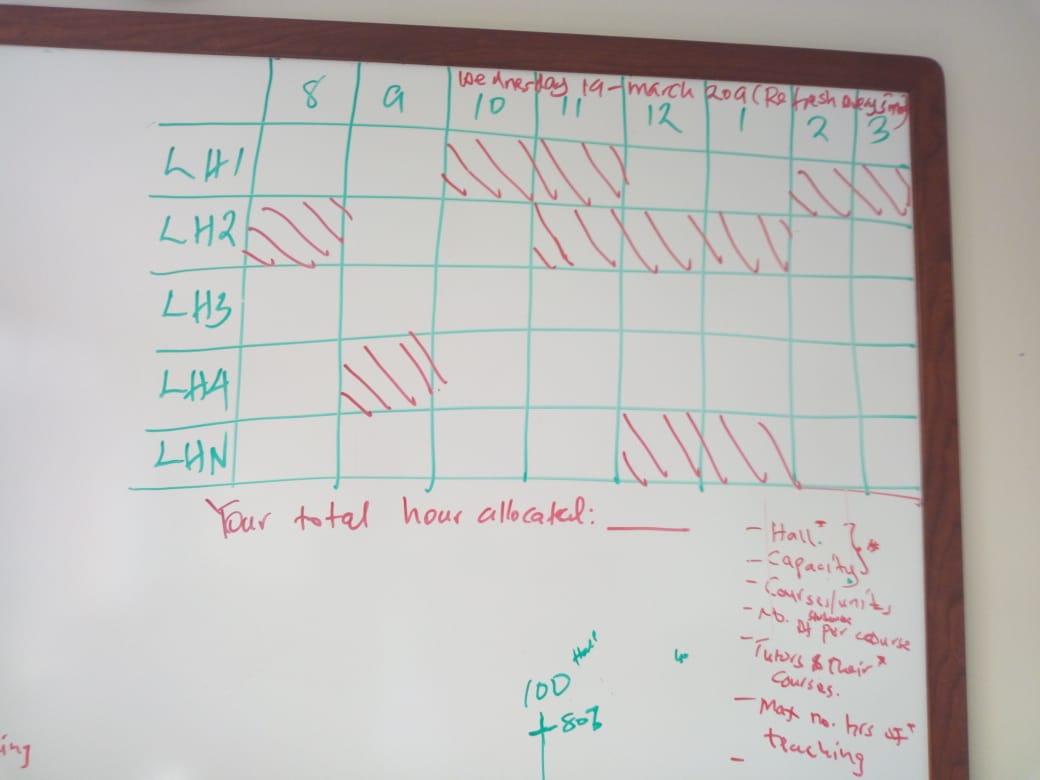 Wednesday 19-march 2019 (Refresh
8 9 10 11 12 1 2 3
LH1
LH2
LH3
LH4
LHN
Your total hour allocated:
- Hall *
- Capacity } *
- Courses/units
- No. of students per course
- Tutors & their *
courses.
- Max no. hrs of *
teaching
-
Hall
100
80%
ing